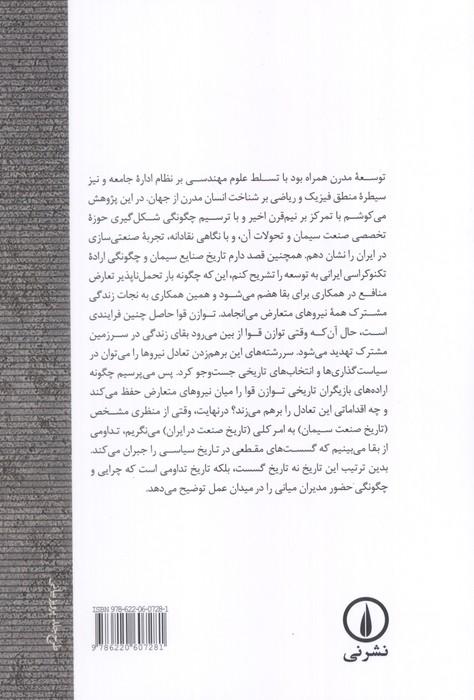 توسعهٔ مدرن همراه بود با تسلط علوم مهندسی بر نظام ادارهٔ جامعه و نیز
سیطرهٔ منطق فیزیک و ریاضی بر شناخت انسان مدرن از جهان. در این پژوهش
می‌کوشم با تمرکز بر نیم‌قرن اخیر و با ترسیم چگونگی شکل‌گیری حوزهٔ
تخصصی صنعت سیمان و تحولات آن، و با نگاهی نقادانه، تجربهٔ صنعتی‌سازی
در ایران را نشان دهم. همچنین قصد دارم تاریخ صنایع سیمان و چگونگی ارادهٔ
تکنوکراسی ایرانی به توسعه را تشریح کنم، این که چگونه بار تحمل‌ناپذیر تعارض
منافع در همکاری برای بقا هضم می‌شود و همین همکاری به نجات زندگی
مشترک همهٔ نیروهای متعارض می‌انجامد. توازن قوا حاصل چنین فرایندی
است، حال آن‌که وقتی توازن قوا از بین می‌رود بقای زندگی در سرزمین
مشترک تهدید می‌شود. سررشته‌های این برهم‌زدن تعادل نیروها را می‌توان در
سیاست‌گذاری‌ها و انتخاب‌های تاریخی جست‌وجو کرد. پس می‌پرسیم چگونه
اراده‌های بازیگران تاریخی توازن قوا را میان نیروهای متعارض حفظ می‌کند
و چه اقداماتی این تعادل را برهم می‌زند؟ درنهایت، وقتی از منظری مشخص
(تاریخ صنعت سیمان) به امر کلی (تاریخ صنعت در ایران) می‌نگریم، تداومی
از بقا می‌بینیم که گسست‌های مقطعی در تاریخ سیاسی را جبران می‌کند.
بدین ترتیب این تاریخ نه تاریخ گسست، بلکه تاریخ تداومی است که چرایی و
چگونگی حضور مدیران میانی را در میدان عمل توضیح می‌دهد.
ISBN 978-622-06-0728-1
9 786220 607281
نشرنی